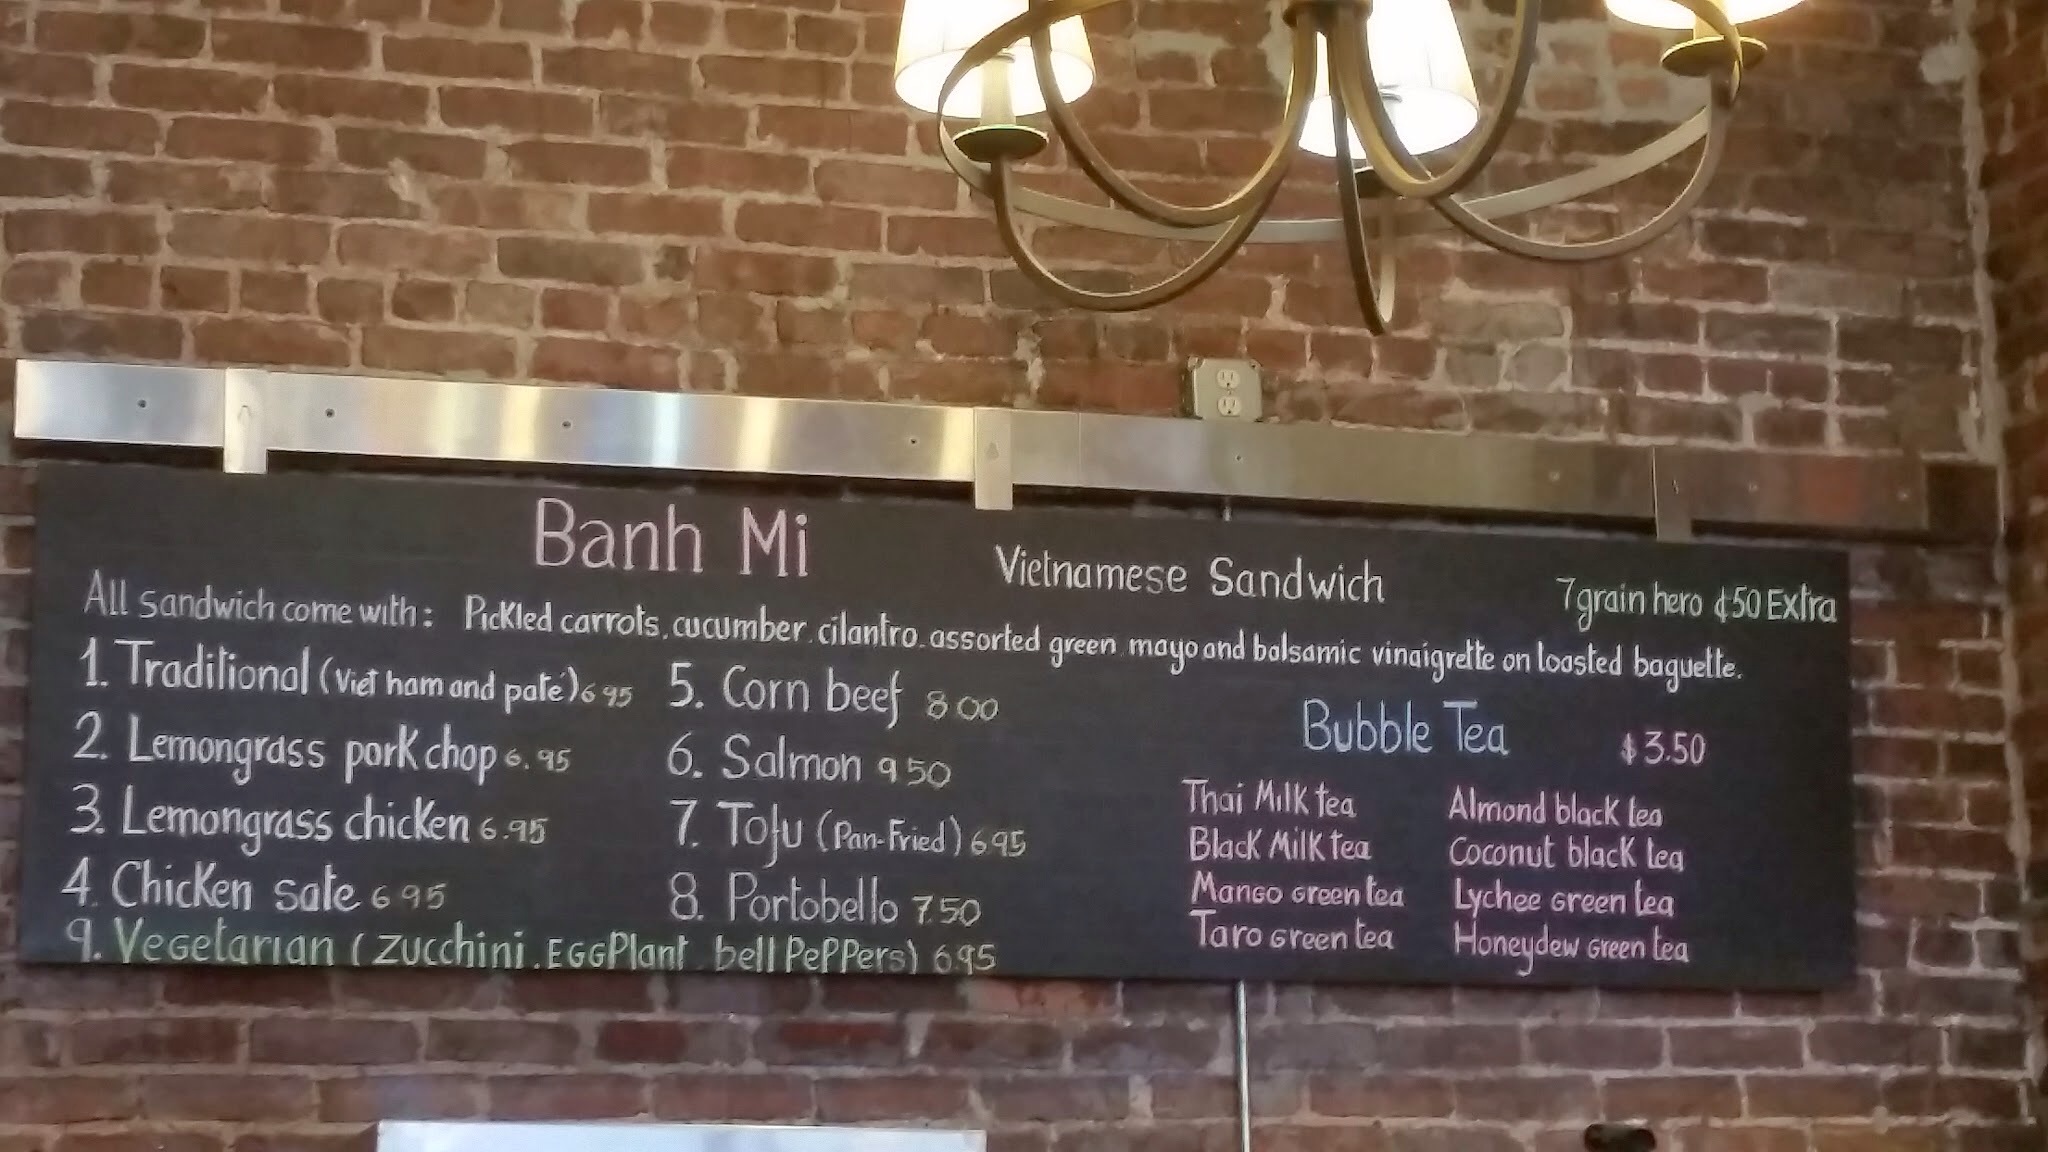 Banh Mi
Vietnamese Sandwich
7 grain hero ¢50 Extra
All sandwich come with: Pickled carrots, cucumber, cilantro, assorted green, mayo and balsamic vinaigrette on toasted baguette.
1. Traditional (Viet ham and paté) 6 95
2. Lemongrass pork chop 6.95
3. Lemongrass chicken 6.95
4. Chicken sate 6 95
5. Corn beef 8 00
6. Salmon 9 50
7. Tofu (Pan-Fried) 6.95
8. Portobello 7.50
9. Vegetarian (zucchini, EGGPlant, bell PePPers) 6.95
Bubble Tea $3.50
Thai Milk tea
Black Milk tea
Mango Green tea
Taro Green tea
Almond black tea
Coconut black tea
Lychee Green tea
Honeydew Green tea